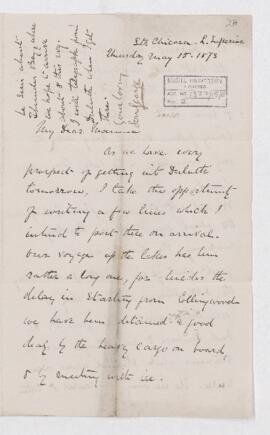 Str. Chicora. L. Superior
Thursday May 15. 1873
My Dear Mamma
As we have every
prospect of getting into Duluth
tomorrow, I take this opportunity
of writing a few lines which I
intend to post there on arrival.
Our voyage up the Lakes has been
rather a long one, for besides the
delay in starting from Collingwood
we have been detained a good
deal by the heavy cargo on board,
& by meeting with ice.
be seen about
Thunder Bay, where
we hope to arrive
about 8 this evg.
I will telegraph from
Duluth when I get
there.
Your loving
Son George